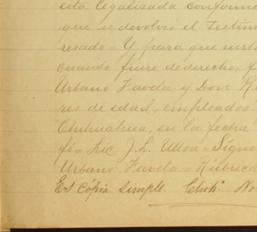 está legalizada conforme
que se devolvió el testim
resado - Y para que surta
cuando fuere de derecho, f
Urbano Zavela y Don R
res de edad, empleados
Chihuahua, en la fecha
fé - Lic J. L. - Signo
Urbano Zavela - Rúbrica
Es cópia simple